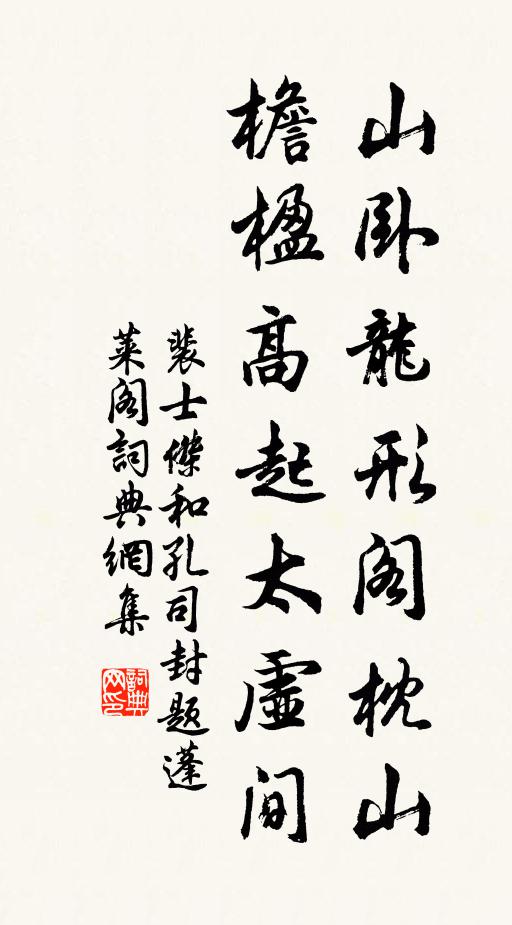 山卧龍形阁枕山
檐楹高起太虚间
裴士傑和孔司封题蓬
莱阁詞典網集
詞典
网印